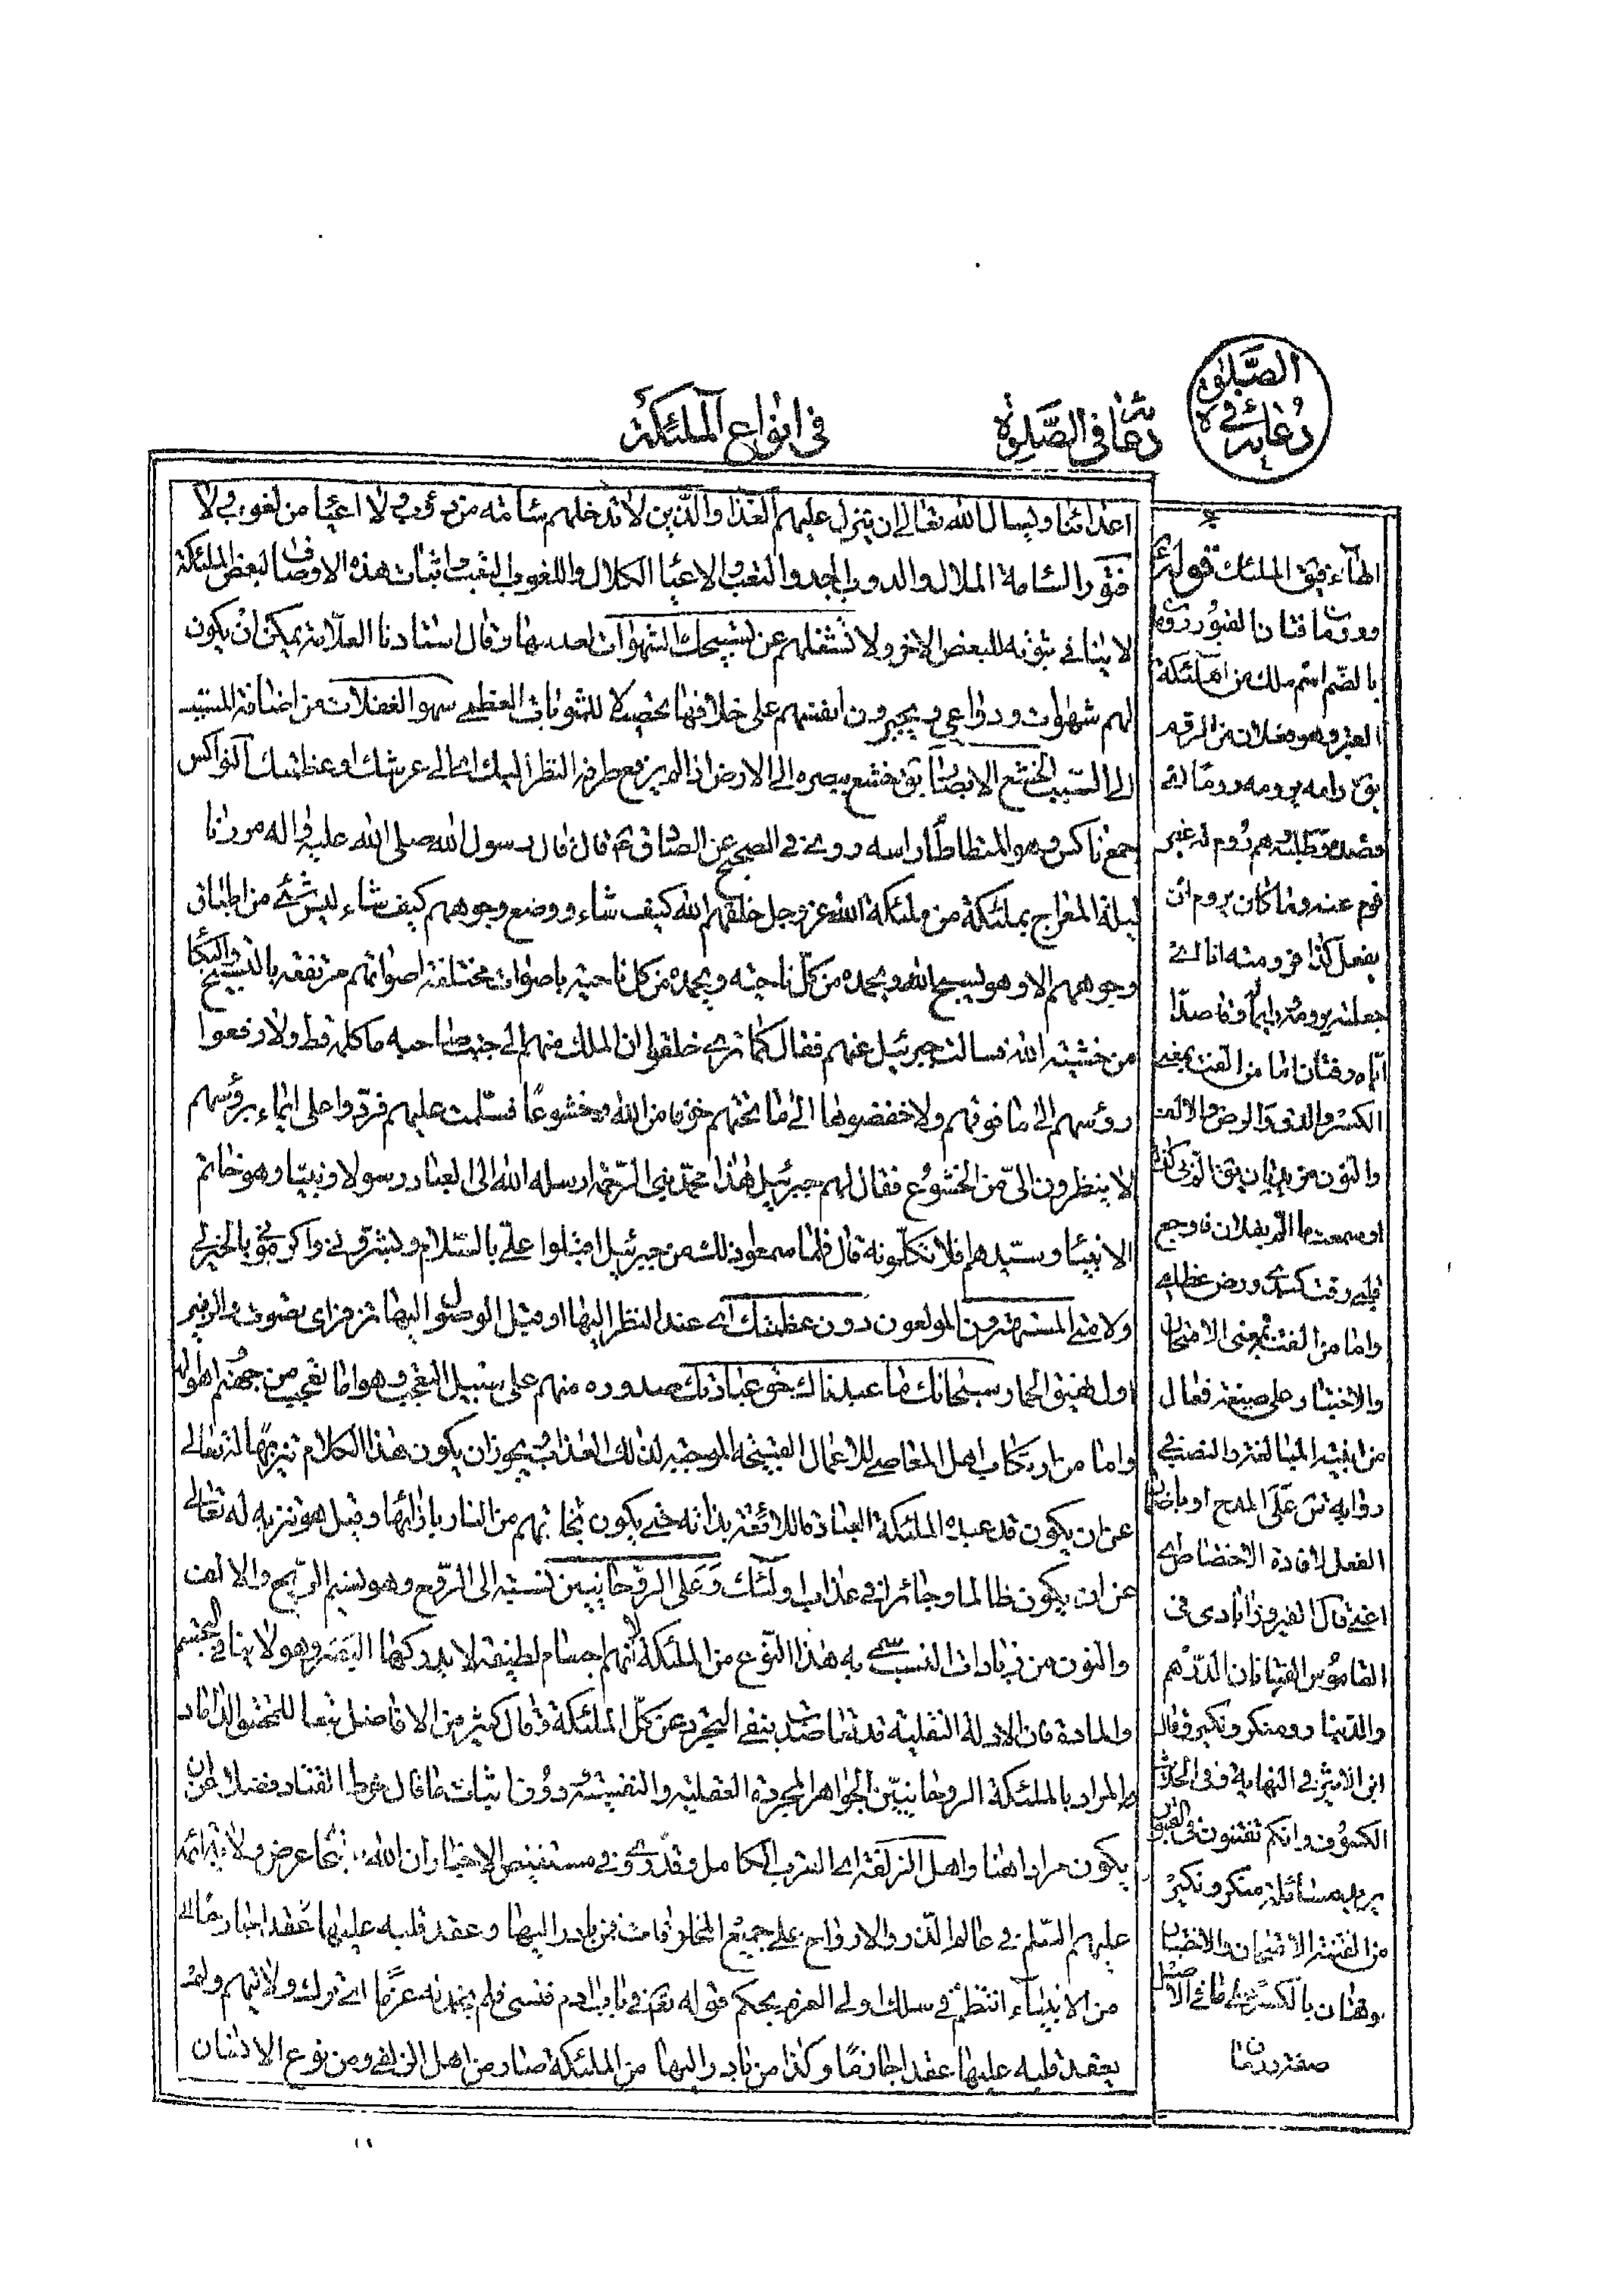 الصلوة
دعائه في
دعائه في الصّلوة
في انواع الملئكة
اعدائنا ويسال الله تعالى ان ينزل عليهم العذاب والذين لا تدخلهم سأمة من دؤوب ولا اعياء من لغوب ولا
فتور السامة الملال والدؤب الجد والتعب والاعياء الكلال واللغوب التعب واثبات هذه الاوصاف لبعض الملئكة
لا ينافي ثبوته للبعض الاخر ولا تشغلهم عن تسبيحك الشهوات لعدمها وقال استادنا العلّامة يمكن ان يكون
لهم شهوات ودواعي ويجبرون انفسهم على خلافها تحصيلا للمثوبات العظمى سهو الغفلات من اضافة المسبب
الى السبب الخشع الابصار يق خشع ببصره الى الارض اذا لم يرفع طرفه النظر اليك اي الى عرشك او عظمتك النواكس
جمع ناكس وهو المتطاطأ راسه روى في الصحيح عن الصادق ع قال قال رسول الله صلى الله عليه واله مررنا
ليلة المعراج بملئكة من ملئكة الله عز وجل خلقهم الله كيف شاء ووضع وجوههم كيف شاء ليس شئ من اطباق
وجوههم الا وهو يسبح الله ويحمده من كل ناحية باصوات مختلفة اصواتهم مرتفعة بالتسبيح والبكا
من خشية الله فسالت جبرئيل عنهم فقال كما ترى خلقوا ان الملك منهم الى جنب صاحبه ما كلمه قط ولا رفعوا
رؤسهم الى ما فوقهم ولا خفضوها الى ما تحتهم خوفا من الله وخشوعًا فسلمت عليهم فردّوا علي ايماء برؤسهم
لا ينظرون الىّ من الخشوع فقال لهم جبرئيل هذا محمّد نبي الرّحمة ارسله الله الى العباد رسولا ونبيّا وهو خاتم
الانبياء وسيّدهم افلا تكلّمونه قال فلما سمعوا ذلك من جبرئيل اقبلوا علىّ بالسّلام وبشّروني واكرموني بالخير لي
ولامتي المستهترون المولعون دون عظمتك اي عند النظر اليها او قبل الوصول اليها تزفر اي تصوت والزفير
اول نهيق الحمار سبحانك ما عبدناك حق عبادتك صدوره منهم على سبيل التعجب وهو اما تعجب من جهنم اهوالها
واما من ارتكاب اهل المعاصي للاعمال القبيحة الموجبة لذلك العذاب يجوز ان يكون هذا الكلام تنزيهًا له تعالى
عن ان يكون قد عبده الملئكة العبادة اللائقة بذاته حتى يكون نجاتهم من النار بازائها وقيل هو تنزيه له تعالى
عن ان يكون ظالما وجائرا في عذاب اولئك وعلى الروحانيين نسبة الى الروح وهو نسيم الريح والالف
والنون من زيادات النسب سمى به هذا النوع من الملئكة لانهم اجسام لطيفة لا يدركها البصر وهو لا ينافي التجسم
والمادة فان الادلة النقلية قد تعاضدت بنفي التجرد عن كل الملئكة وقال كثير من الافاضل تبعا للمحقق الداماد
والمراد بالملئكة الروحانيين الجواهر المجردة العقلية والنفسية ودون اثبات ما قال خرط القتاد فضلا عن ان
يكون مرادا هنا واهل الزلفة اي القرب الكامل وقد روي في مستفيض الاخبار ان الله سبحانه عرض ولاية الائمة
عليهم السلم في عالم الذر والارواح على جميع المخلوقات فمن بادر اليها وعقد قلبه عليها عقدا جازمًا
من الانبياء انتظم في سلك اولي العزم بحكم قوله تع في باب ادم فنسى فلم نجد له عزمًا اي ترك ولايتهم ولم
يعقد قلبه عليها عقدا جازمًا وكذا من بادر اليها من الملئكة صار من اهل الزلفى ومن نوع الاذنان
الهآء فيق الملئك قوله ع
ورومان فتان القبور رومان
بالضم اسم ملك من الملئكة
القبر وهو فعلان من الروم
يق رامه يرومه رومًا اي
قصده وطلبه هم روم له غير
نوم عنه وما كان يروم ان
يفعل كذا
جعلته يرومه رائما وقاصدًا
اياه وفتان اما من الفت بمعنى
الكسر والدق والرض والالف
والنون مزيدتان يق
فاوجع
قلبي وفت كبدي ورض عظامي
واما من الفتنة بمعنى الامتحان
والاختبار على صيغة فعال
من ابنية المبالغة والنصب في
رواية س على المدح او باضمار
الفعل لافادة الاختصاص اي
اعني قال الفيروزابادي في
القاموس الفتانان الدرهم
والدينار ومنكر ونكير وقال
ابن الاثير في النهاية وفي الحديث
الكسوف وانكم تفتنون في القبور
يريد مسائلة منكر ونكير
من الفتنة الامتحان والاختبار
وفتان بالكسر على ما في الاصل
صفة رومان